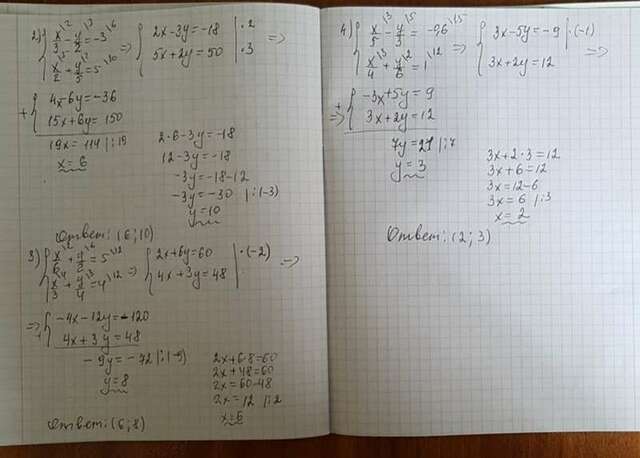 2) { x/3 \2 - y/2 \3 = -3 \6 => { 2x - 3y = -18 | · 2 =>
x/2 \5 + y/5 \2 = 5 \10 { 5x + 2y = 50 | · 3
+ { 4x - 6y = -36
15x + 6y = 150
19x = 114 | : 19
x = 6
2 · 6 - 3y = -18
12 - 3y = -18
-3y = -18 - 12
-3y = -30 | : (-3)
y = 10
Ответ: (6; 10)
3) { x/6 \2 + y/2 \6 = 5 \12 => { 2x + 6y = 60 | · (-2) =>
x/3 \4 + y/4 \3 = 4 \12 { 4x + 3y = 48
=> + { -4x - 12y = -120
4x + 3y = 48
-9y = -72 | : (-9)
y = 8
2x + 6 · 8 = 60
2x + 48 = 60
2x = 60 - 48
2x = 12 | : 2
x = 6
Ответ: (6; 8)
4) { x/5 \3 - y/3 \5 = -0,6 \15 => { 3x - 5y = -9 | · (-1) =>
x/4 \3 + y/6 \2 = 1 \12 { 3x + 2y = 12
=> + { -3x + 5y = 9
3x + 2y = 12
7y = 21 | : 7
y = 3
3x + 2 · 3 = 12
3x + 6 = 12
3x = 12 - 6
3x = 6 | : 3
x = 2
Ответ: (2; 3)